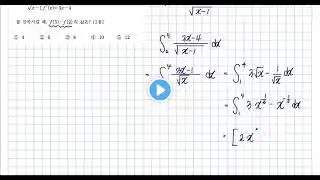 √x-1 f'(x)=3x-4
를 만족시킬 때, f(5)-f(2)의 값은? [3점]
① 4 ② 6 ③ 8 ④ 10 ⑤ 12
√x-1
∫₂⁵ 3x-4/√x-1 dx
= ∫₁⁴ 3x-1/√x dx = ∫₁⁴ 3√x - 1/√x dx
= ∫₁⁴ 3x^½ - x^-½ dx
= [2x